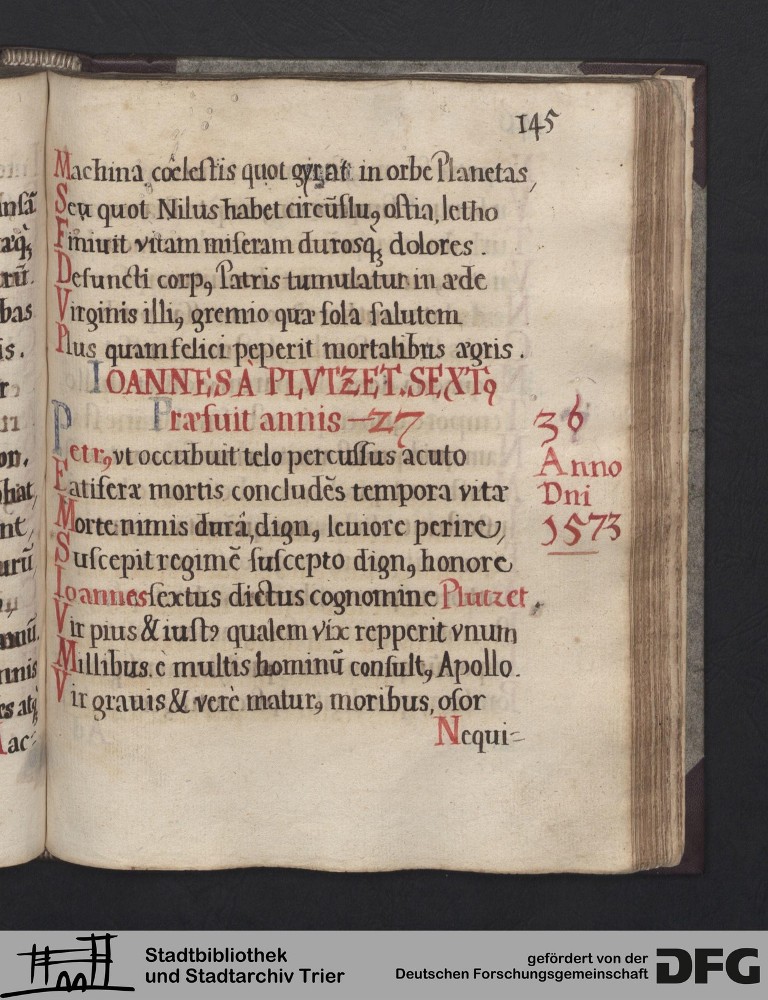 145
Machina coelestis quot gyrat in orbe Planetas,
Seu quot Nilus habet circũfluꝰ ostia, letho
Finiuit vitam miseram durosq̃ꝫ dolores.
Defuncti corpꝰ Patris tumulatur in æde
Virginis illiꝰ gremio quæ sola salutem
Plus quam felici peperit mortalibus ægris.
IOANNES À PLVTZET. SEXTꝰ
Præfuit annis 27
36
Petrꝰ vt occubuit telo percussus acuto
Anno
Fatiferæ mortis concludẽs tempora vitæ
Dni
Morte nimis durâ, dignꝰ leuiore perire,
1573
Suscepit regimẽ suscepto dignꝰ honore
Ioannes sextus dictus cognomine Plutzet.
Vir pius & iustꝰ qualem vix repperit vnum
Millibus è multis hominũ consultꝰ Apollo.
Vir grauis & verè maturꝰ moribus, osor
Nequi=
Stadtbibliothek
und Stadtarchiv Trier
gefördert von der
Deutschen Forschungsgemeinschaft
DFG